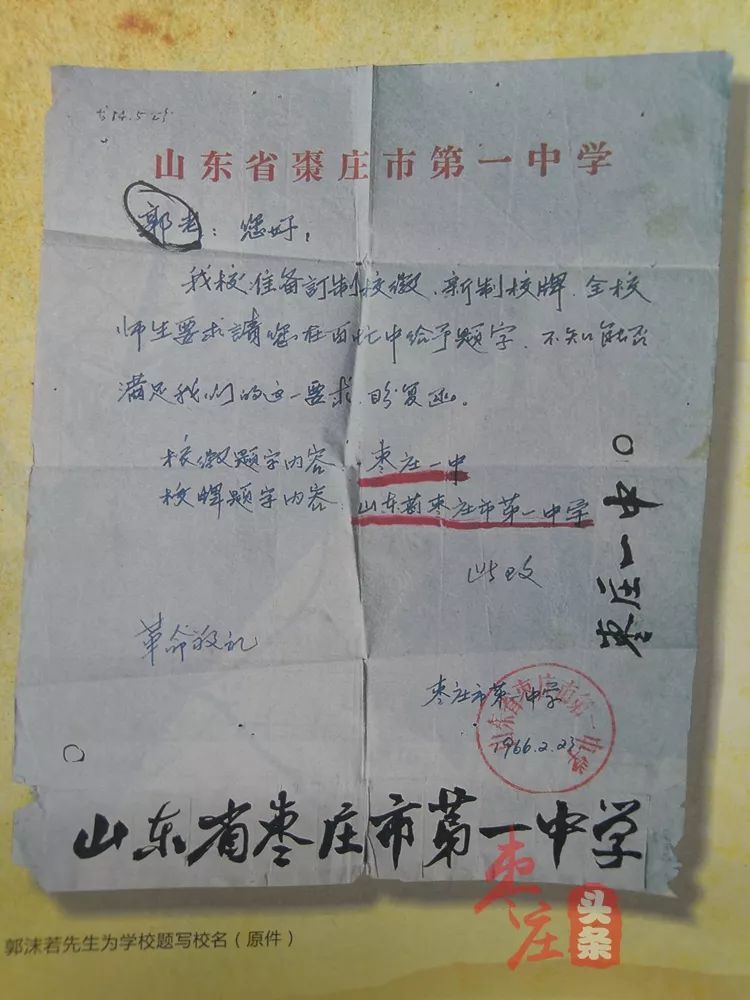 山东省棗庄市第一中学
郭老：您好，
我校准备訂制校徽、新制校牌，全校
师生要求請您在百忙中给予题字，不知能否
满足我们的这一要求，盼复函。
校徽题字内容：枣庄一中
校牌题字内容：山东省枣庄市第一中学
此致
革命敬礼
枣庄市第一中学
1966.2.23
山东省枣庄市第一中学
枣庄一中
山东省枣庄市第一中学
枣庄头条
郭沫若先生为学校题写校名（原件）